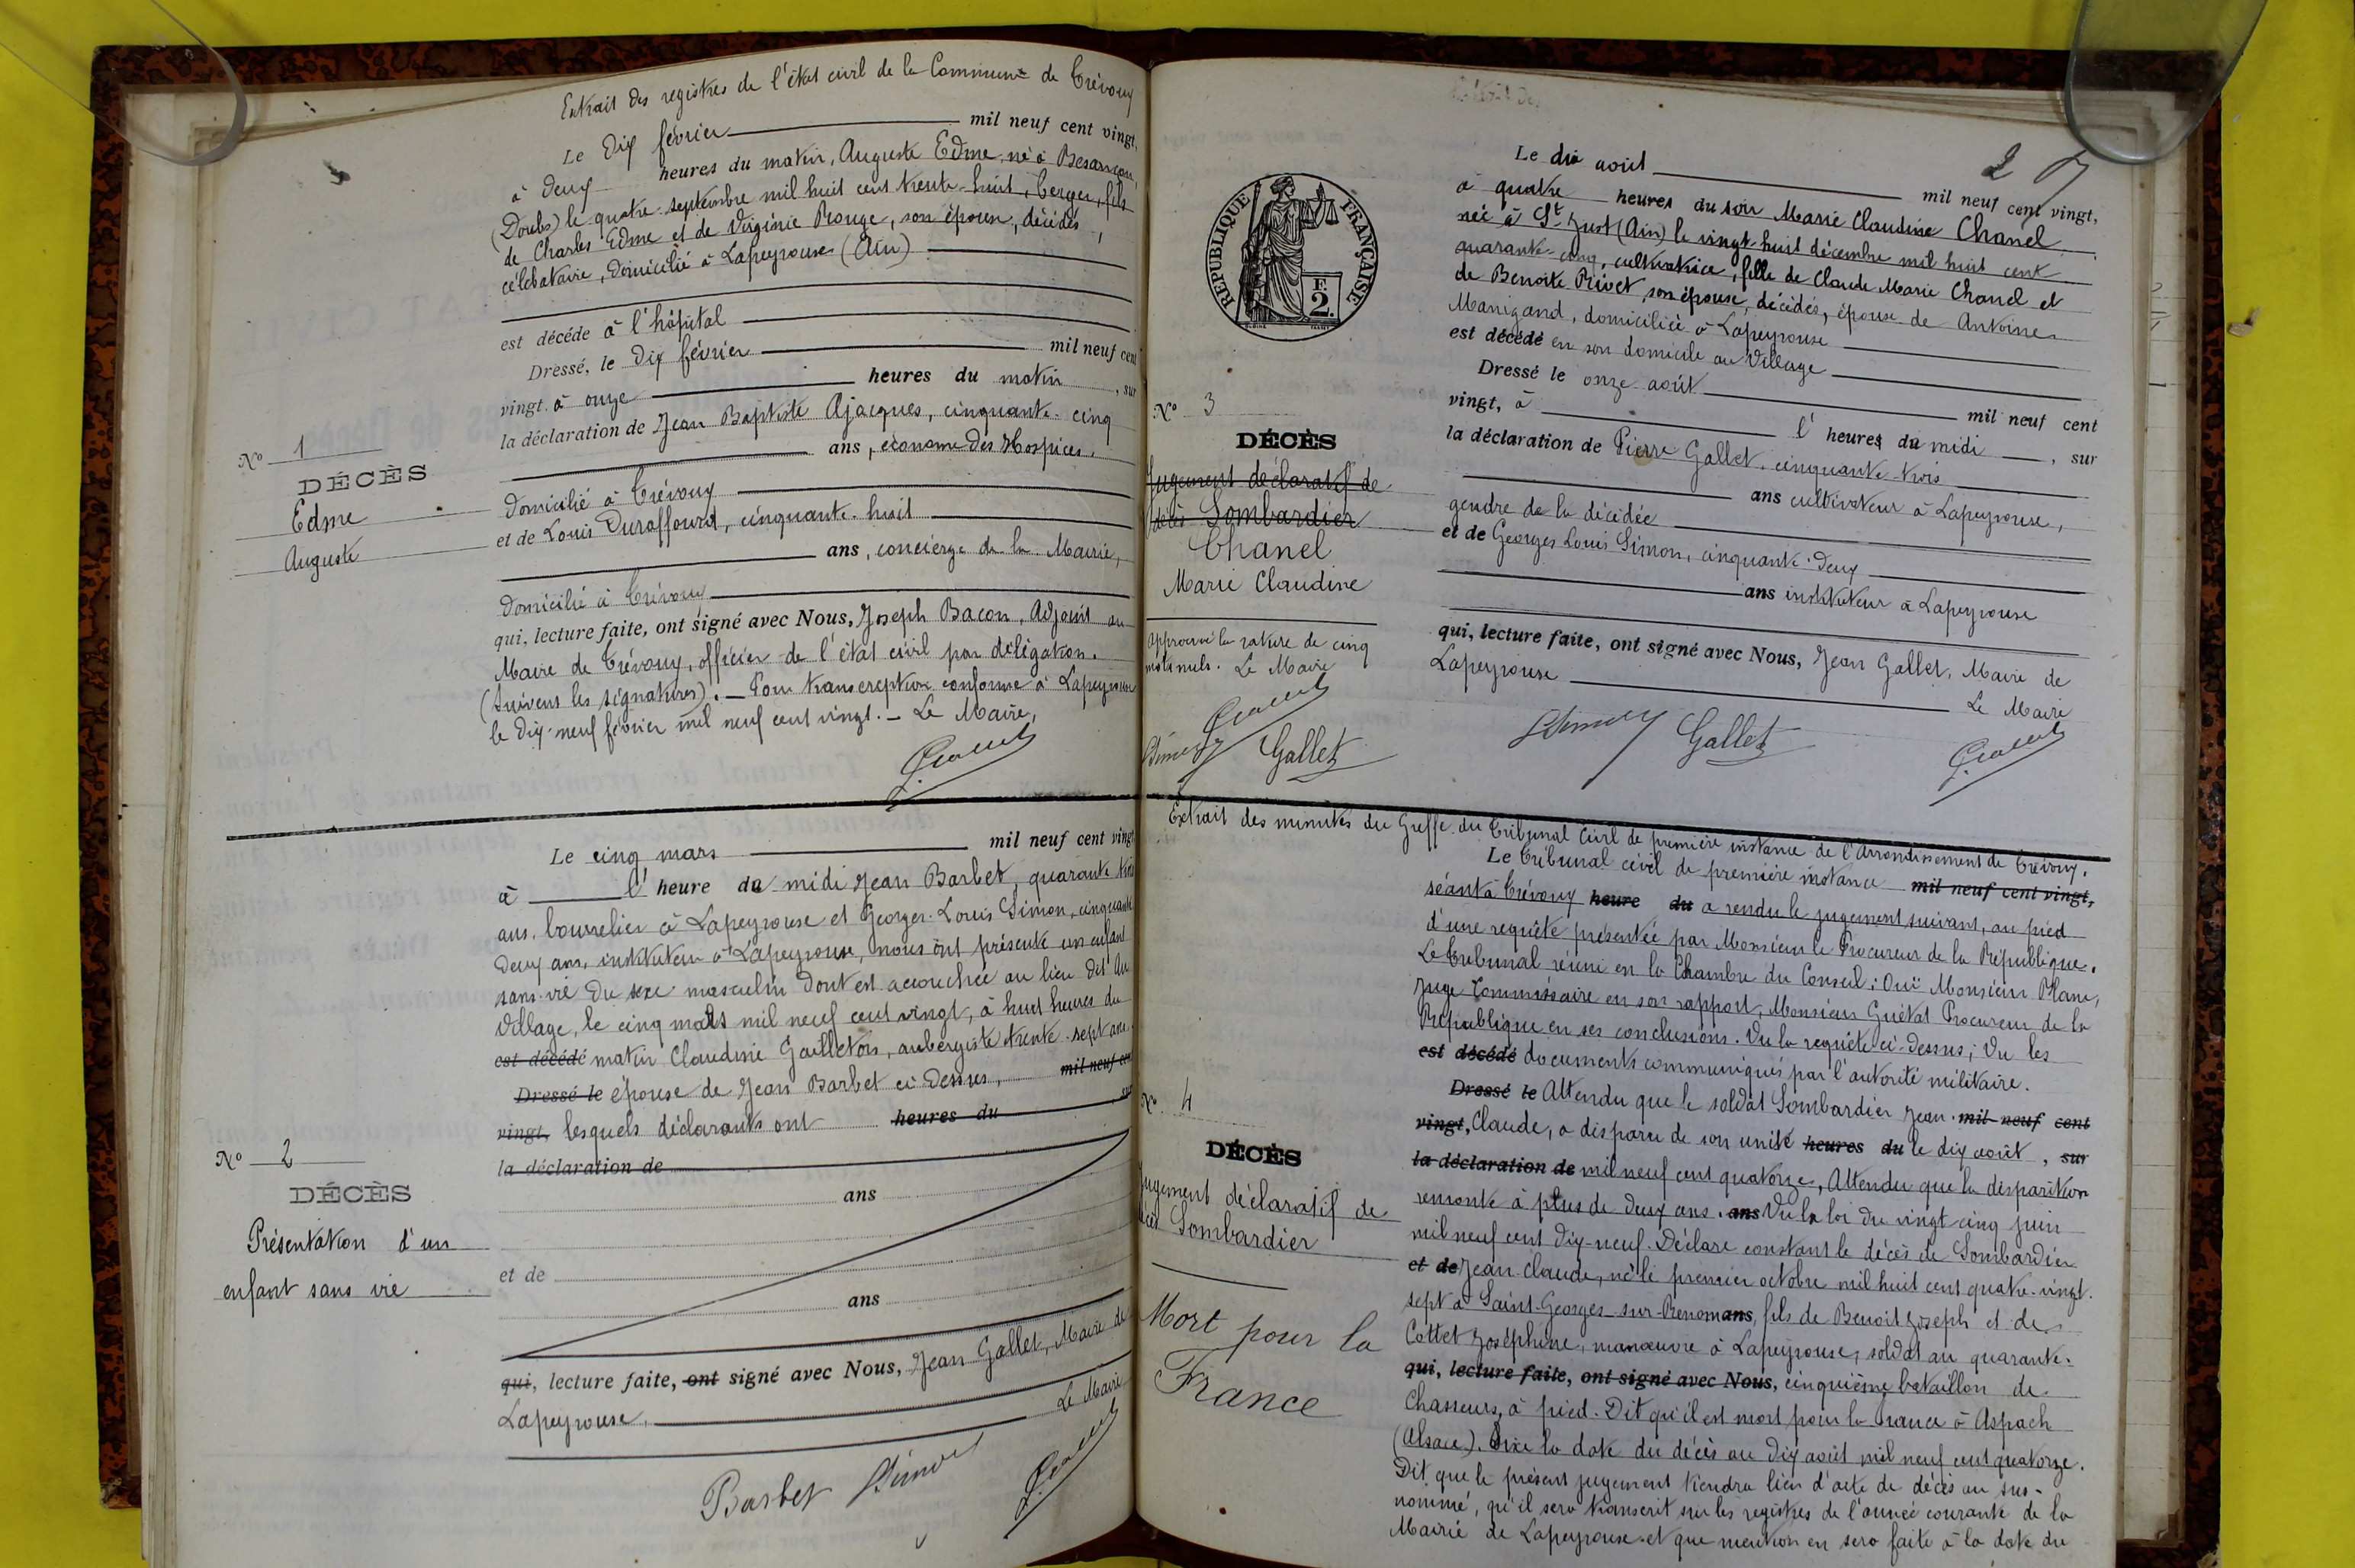 Extrait des registres de l'état civil de la Commune de Trévoux
Le dix février mil neuf cent vingt,
à deux heures du matin, Auguste Edme, né à Besançon,
(Doubs) le quatre septembre mil huit cent trente-huit, berger, fils
de Charles Edme et de Virginie Rouge, son épouse, décédés,
célibataire, domicilié à Lapeyrouse (Ain)
est décédé à l'hôpital
Dressé, le dix février mil neuf cent
vingt à onze heures du matin, sur
la déclaration de Jean Baptiste Ajacques, cinquante-cinq
ans, économe des Hospices,
domicilié à Trévoux
et de Louis Duraffourd, cinquante-huit
ans, concierge de la Mairie,
domicilié à Trévoux
qui, lecture faite, ont signé avec Nous, Joseph Bacon, Adjoint au
Maire de Trévoux, officier de l'état civil par délégation.
(Suivent les signatures). — Pour transcription conforme à Lapeyrouse
le dix-neuf février mil neuf cent vingt. — Le Maire,
N° 1
DÉCÈS
Edme
Auguste
Le cinq mars mil neuf cent vingt
à l' heure du midi Jean Barbet, quarante trois
ans, bourrelier à Lapeyrouse et Georges-Louis Simon, cinquante
deux ans, instituteur à Lapeyrouse, nous ont présenté un enfant
sans vie du sexe masculin dont est accouchée au lieu dit Au
Village, le cinq mars mil neuf cent vingt, à huit heures du
est décédé matin Claudine Gailleton, aubergiste trente-sept ans
Dressé le épouse de Jean Barbet ci-dessus, mil neuf cent
vingt, lesquels déclarants ont heures du sur
la déclaration de
ans
et de
ans
qui, lecture faite, ont signé avec Nous, Jean Gallet, Maire de
Lapeyrouse. Le Maire
Barbet Simon
N° 2
DÉCÈS
Présentation d'un
enfant sans vie
2
REPUBLIQUE FRANÇAISE
F.
2.
Le dix août mil neuf cent vingt,
à quatre heures du soir Marie Claudine Chanel
née à St Just (Ain) le vingt-huit décembre mil huit cent
quarante-cinq, cultivatrice, fille de Claude Marie Chanel et
de Benoite Privet, son épouse, décédés, épouse de Antoine
Manigand, domiciliée à Lapeyrouse
est décédé en son domicile au Village
Dressé le onze août mil neuf cent
vingt, à l' heures du midi, sur
la déclaration de Pierre Gallet, cinquante-trois
ans cultivateur à Lapeyrouse,
gendre de la décédée
et de Georges Louis Simon, cinquante-deux
ans instituteur à Lapeyrouse
qui, lecture faite, ont signé avec Nous, Jean Gallet, Maire de
Lapeyrouse
Le Maire
Simon Gallet
N° 3
DÉCÈS
Jugement déclaratif de
décès Sombardier
Chanel
Marie Claudine
Approuvé la rature de cinq
mots nuls. Le Maire
Simon Gallet
Extrait des minutes du Greffe du Tribunal Civil de première instance de l'Arrondissement de Trévoux.
Le Tribunal civil de première instance mil neuf cent vingt,
séant à Trévoux heure du a rendu le jugement suivant, au pied
d'une requête présentée par Monsieur le Procureur de la République.
Le Tribunal réuni en la Chambre du Conseil; Ouï Monsieur Plane,
Juge Commissaire en son rapport, Monsieur Guétat Procureur de la
République en ses conclusions. Vu la requête ci-dessus; Vu les
est décédé documents communiqués par l'autorité militaire.
Dressé le Attendu que le soldat Sombardier Jean mil neuf cent
vingt, Claude, a disparu de son unité heures du le dix août, sur
la déclaration de mil neuf cent quatorze, Attendu que la disparition
remonte à plus de deux ans. ans Vu la loi du vingt cinq juin
mil neuf cent dix-neuf. Déclare constant le décès de Sombardier
et de Jean Claude, né le premier octobre mil huit cent quatre-vingt-
sept à Saint-Georges-sur-Renom ans, fils de Benoit Joseph et de
Cottet Joséphine, manœuvre à Lapeyrouse, soldat au quarante-
qui, lecture faite, ont signé avec Nous, cinquième bataillon de
Chasseurs à pied. Dit qu'il est mort pour la France à Aspach
(Alsace). Fixe la date du décès au dix août mil neuf cent quatorze.
Dit que le présent jugement tiendra lieu d'acte de décès au sus-
nommé, qu'il sera transcrit sur les registres de l'année courante de la
Mairie de Lapeyrouse et que mention en sera faite à la date du
N° 4
DÉCÈS
Jugement déclaratif de
décès Sombardier
Mort pour la
France